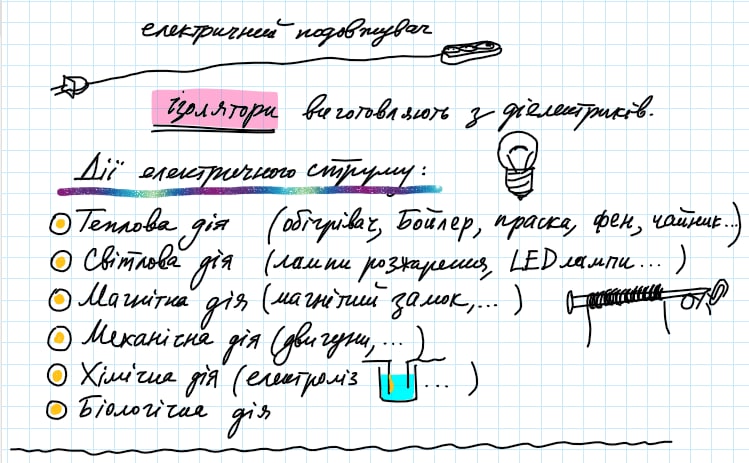 електричний подовжувач
ізолятори виготовляють з діелектриків.
Дії електричного струму:
Теплова дія (обігрівач, Бойлер, праска, фен, чайник...)
Світлова дія (лампи розжарення, LED лампи...)
Магнітна дія (магнітий замок,...)
Механічна дія (двигуни,...)
Хімічна дія (електроліз ...)
Біологічна дія